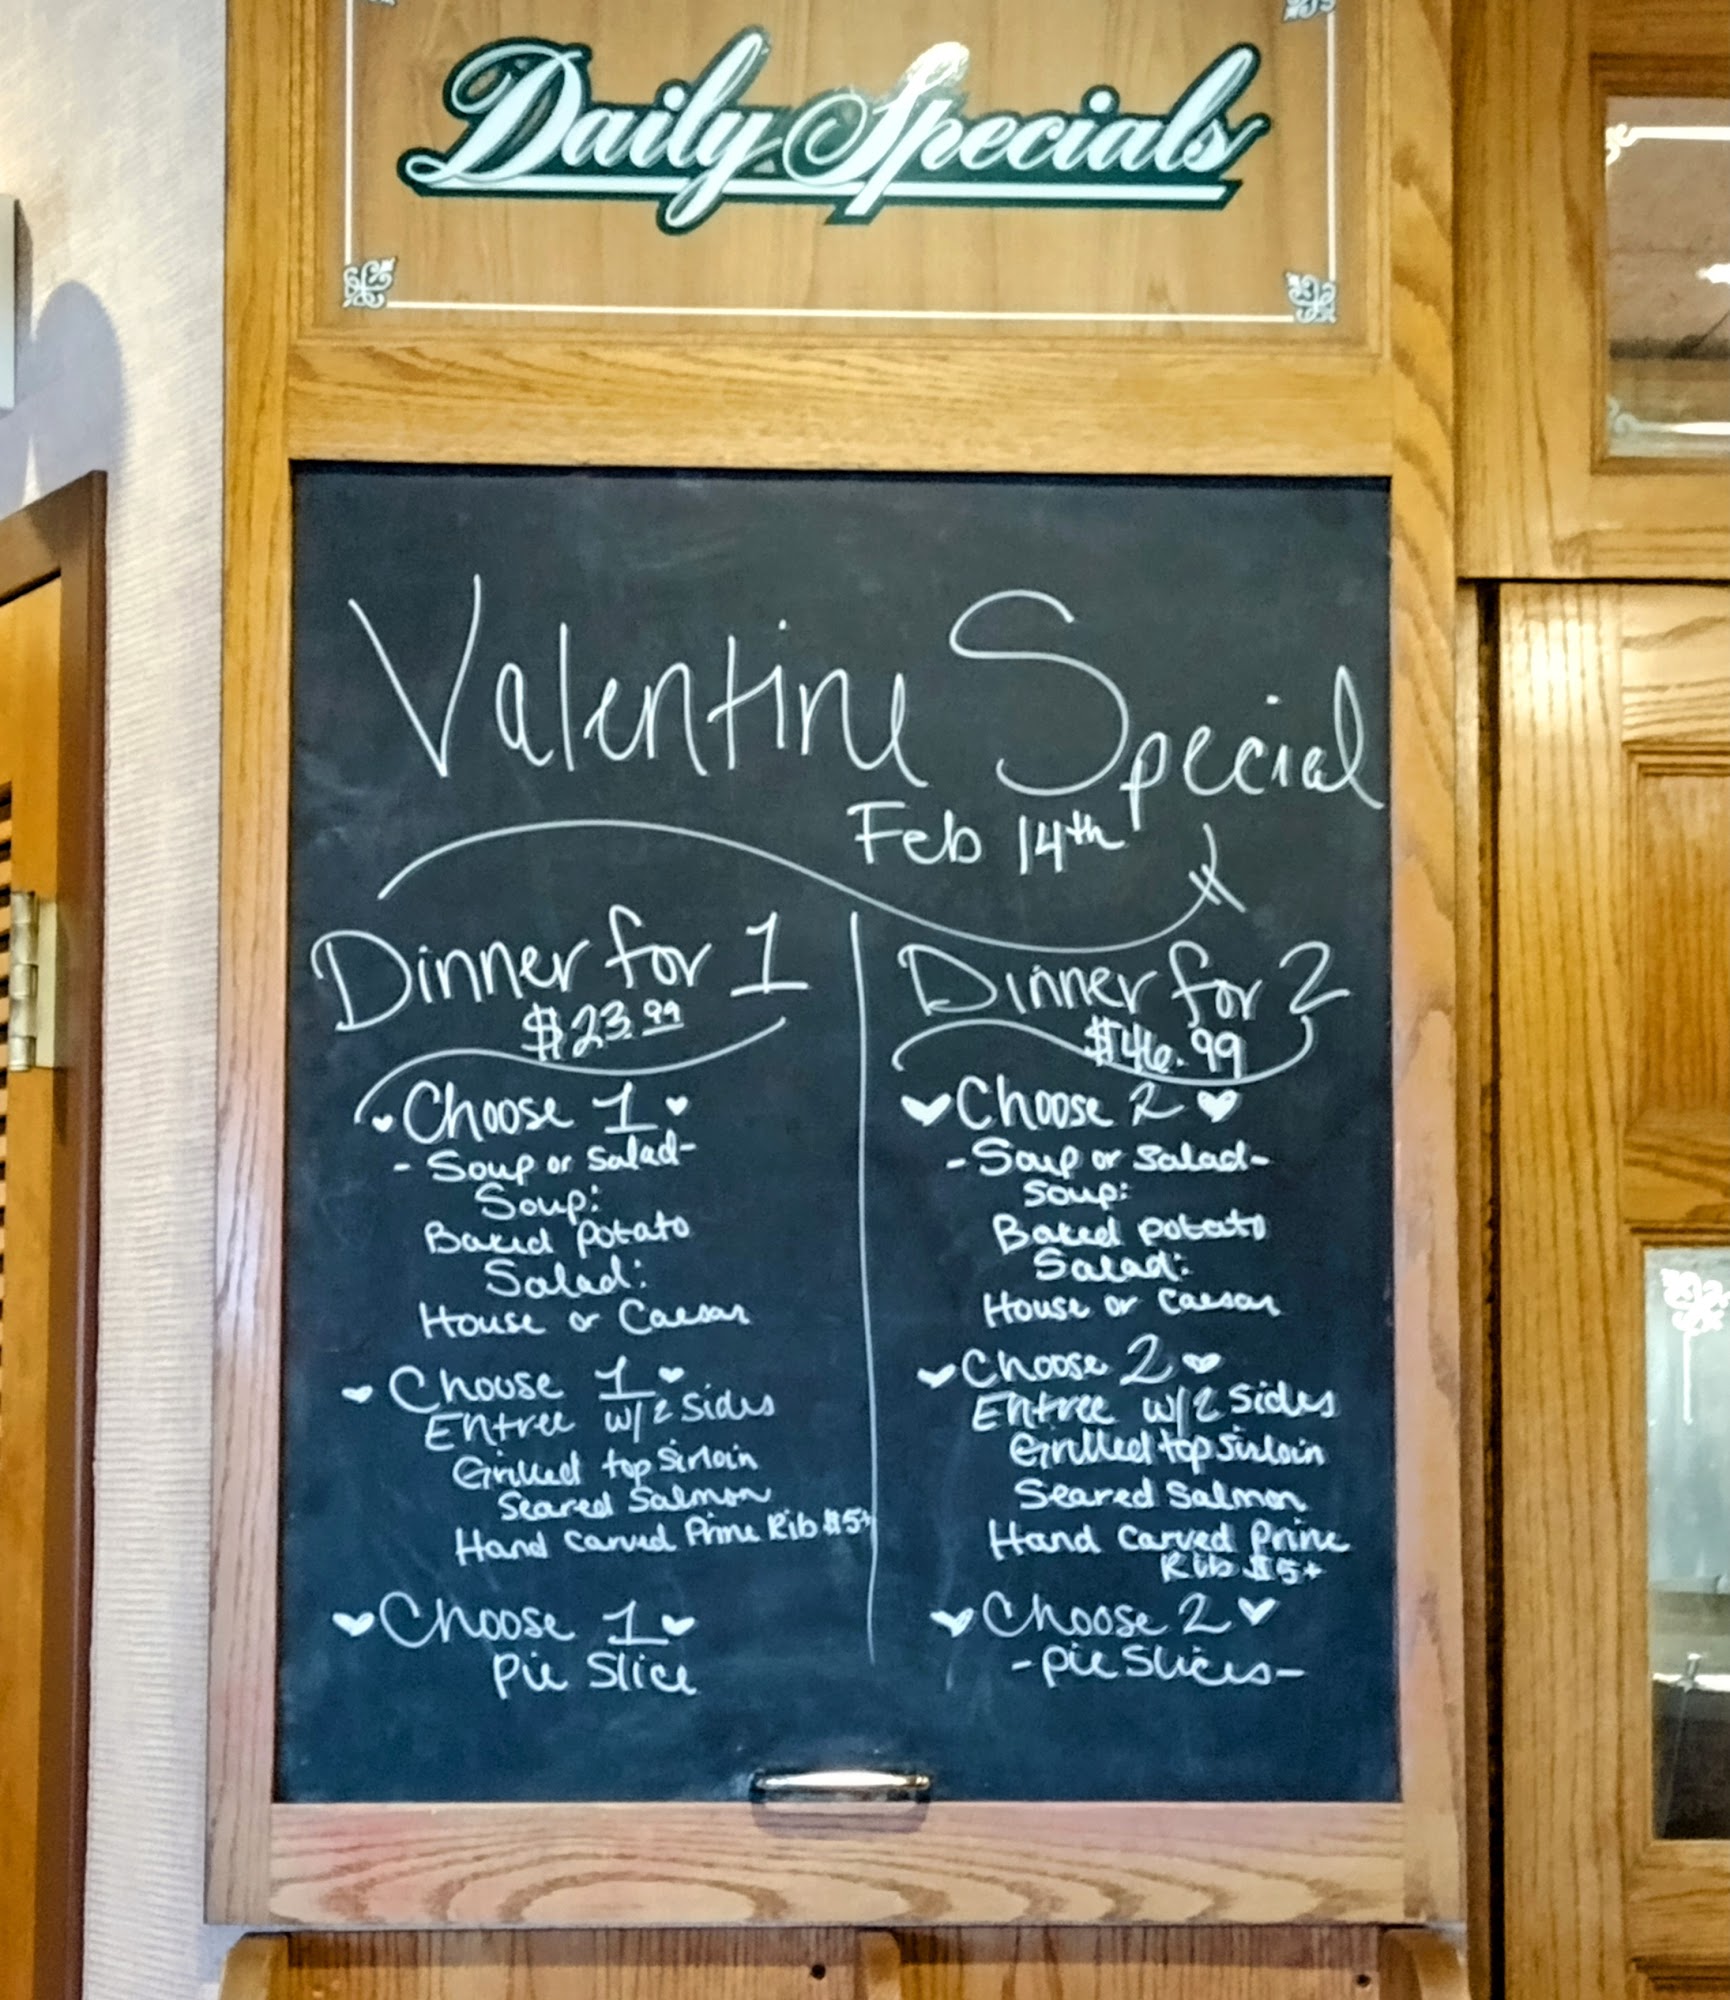 Daily Specials
Valentine Special
Feb 14th
Dinner for 1
$23.99
Choose 1
- Soup or Salad-
Soup:
Baked Potato
Salad:
House or Caesar
Choose 1
Entree w/2 Sides
Grilled top Sirloin
Seared Salmon
Hand Carved Prime Rib $5+
Choose 1
Pie Slice
Dinner for 2
$46.99
Choose 2
-Soup or Salad-
Soup:
Baked potato
Salad:
House or Caesar
Choose 2
Entree w/2 Sides
Grilled top Sirloin
Seared Salmon
Hand Carved Prime
Rib $5+
Choose 2
-Pie Slices-